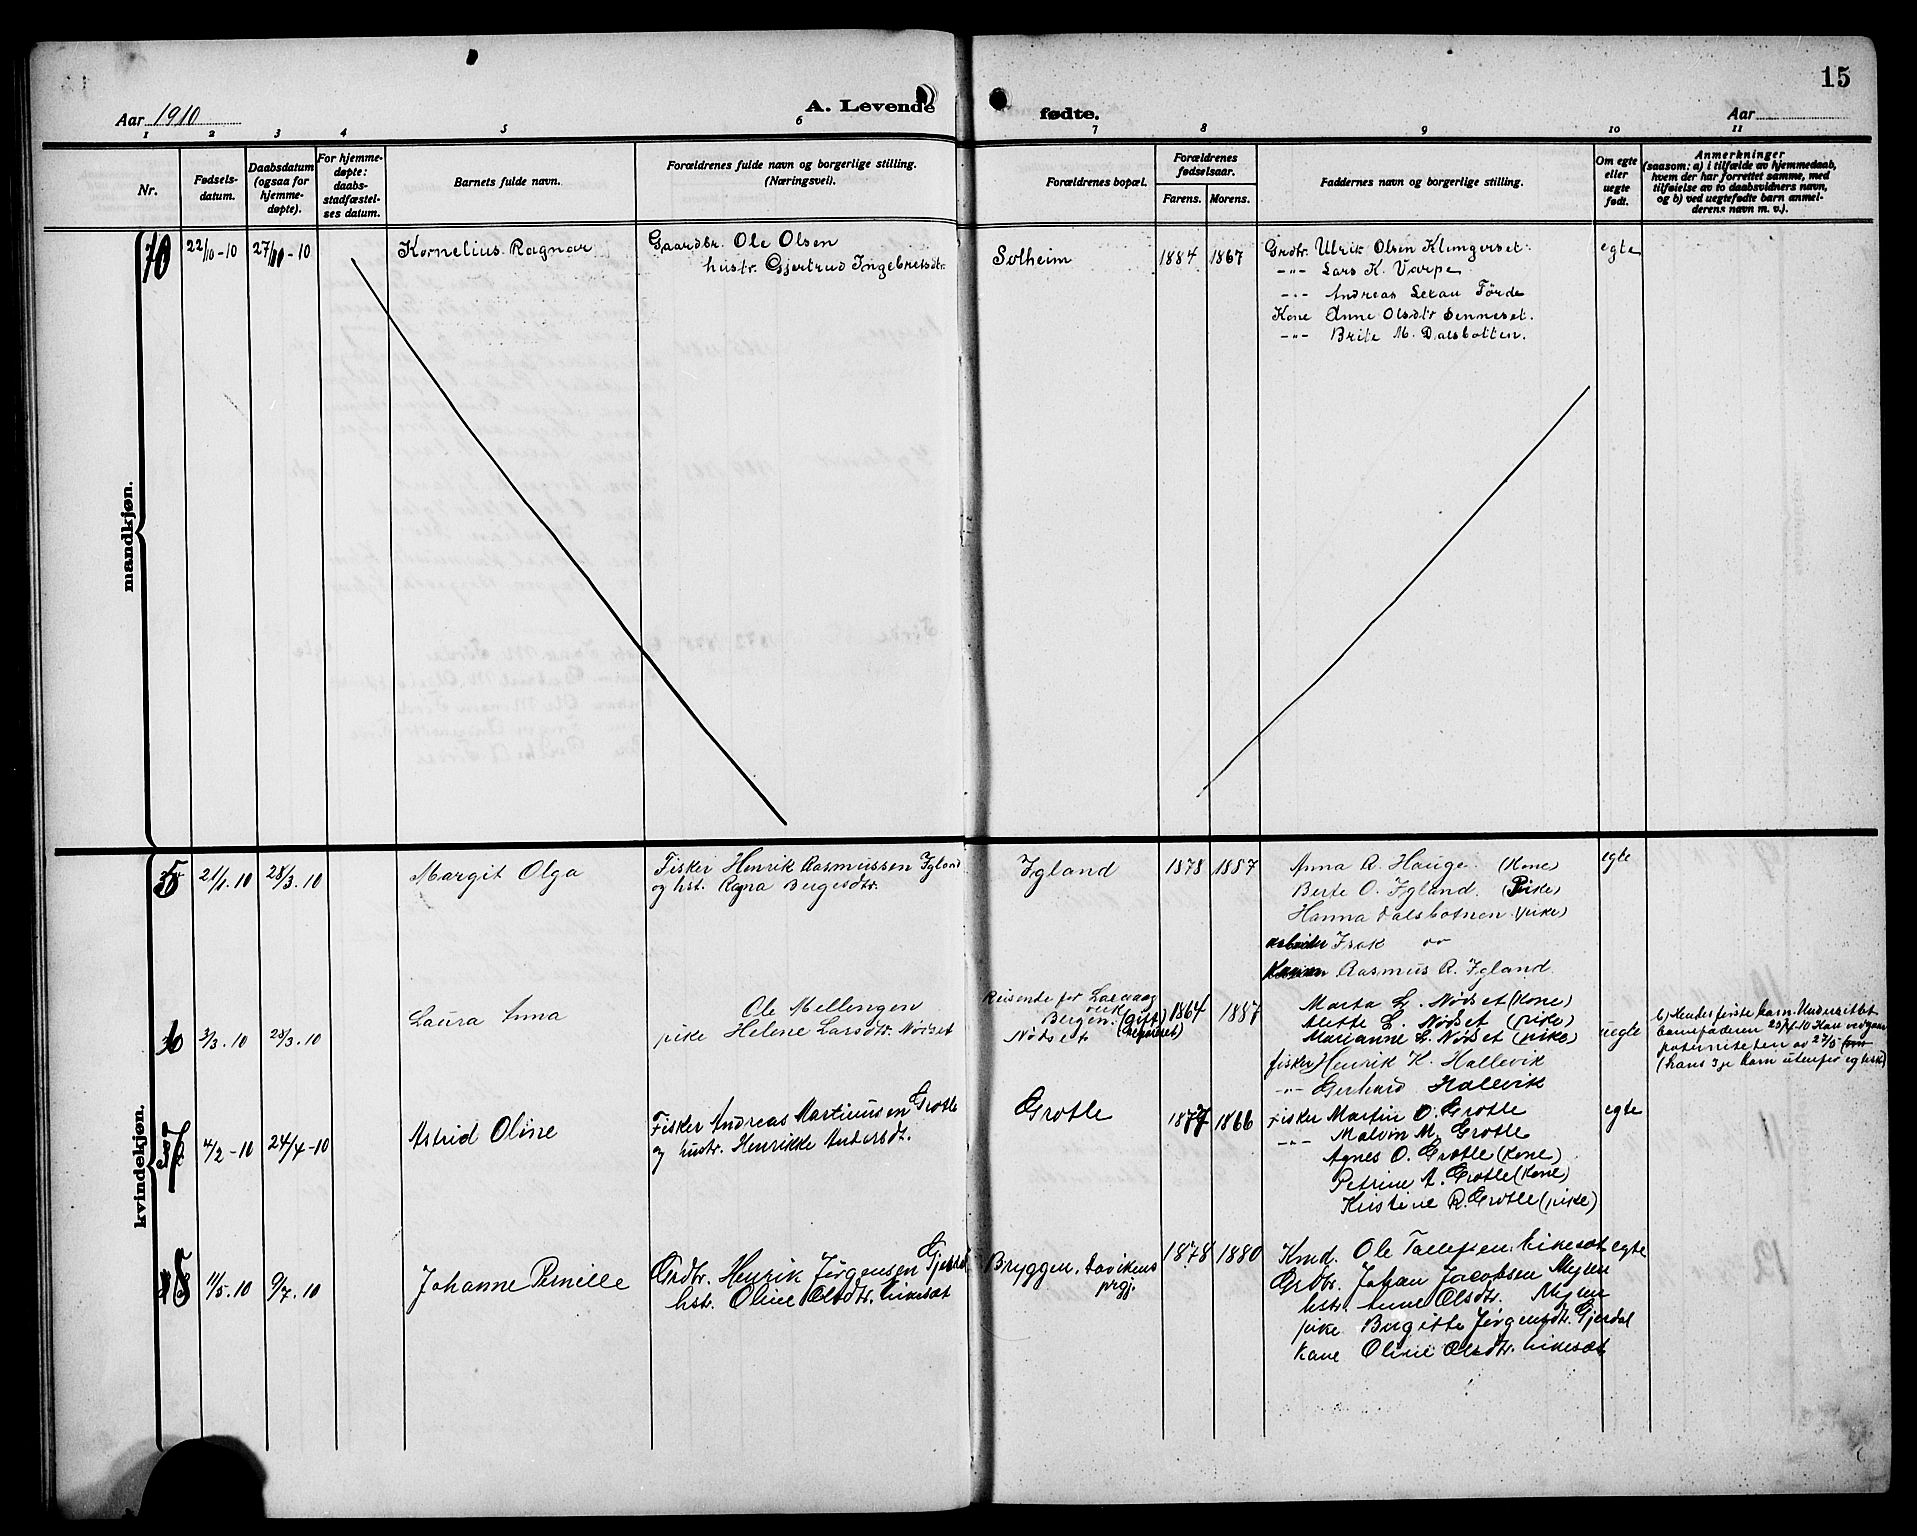 15
Aar 1910
A. Levende
fødte.
Aar
1 2 3 4 5 6 7 8 9 10 11
Nr.
Fødsels-
datum.
Daabsdatum
(ogsaa for
hjemme-
døpte).
For hjemme-
døpte:
daabs-
stadfæstel-
ses datum.
Barnets fulde navn.
Forældrenes fulde navn og borgerlige stilling.
(Næringsvei).
Forældrenes bopæl.
Forældrenes
fødselsaar.
Farens. Morens.
Faddernes navn og borgerlige stilling.
Om egte
eller
uegte
født.
Anmerkninger
(saasom: a) i tilfælde av hjemmedaab,
hvem der har forrettet samme, med
tilføielse av to daabsvidners navn,
og b) ved uegtefødte barn anmel-
derens navn m. v.).
mandkjøn.
70 22/10-10 27/11-10 Kornelius Ragnar
Gaardbr. Ole Olsen
hustr. Gjertrud Ingebretsdtr.
Solheim 1884 1867
Grdbr. Ulrik Olsen Klungerset.
-"- Lars K. Varpe
-"- Andreas Førde
Kone Anne Olsdtr Senneset.
-"- Brite M. Dalsbotten.
egte
kvindekjøn.
35 21/1.10 28/3.10 Margit Olga
Fisker Henrik Rasmussen Igland
og hst. Ragna Bergesdtr.
Igland 1878 1887
Anna R. Hauge (Kone)
Berte O. Igland (Pike)
Hanna Dalsbotnen (pike)
arbeider Isak
Rasmus R. Igland
egte
36 3/3.10 28/3.10 Laura Anna
Ole Mellingen
pike Helene Larsdtr. Nødset
Reisende for
Bergen. (Gift)
Nødset
1864 1887
Marta L. Nødset (Kone)
Alette L. Nødset (pike)
Marianne L. Nødset (pike)
fisker Henrik K. Hallevik
-"- Gerhard Hallevik
uegte
b) Hendes første barn. Underrettet
barnefaderen 29/4.10 Han vedgaar
paterniteten av 27/5
(hans 3je barn utenfor egtesk)
37 4/2-10 24/4-10 Astrid Oline
Fisker Andreas Martinussen Grotle
og hustr. Henrikke Andersdt.
Grotle 1877 1866
Fisker Martin O. Grotle
-"- Malvin M. Grotle
Agnes O. Grotle (Kone)
Petrine A. Grotle (Kone)
Kristine R. Grotle (pike)
egte
38 11/5.10 9/7.10 Johanne Pernille
Grdbr. Henrik Jørgensen Gjerdal
hst. Oline Olsdtr.
Bryggen, Davikens
prgj.
1878 1880
Kmd. Ole
Grdbr. Johan Jacobsen Myren
hst. Anne Olsdtr. Myren
pike Birgitte Jørgensdtr. Gjerdal
Kone Oline Olsdtr.
egte